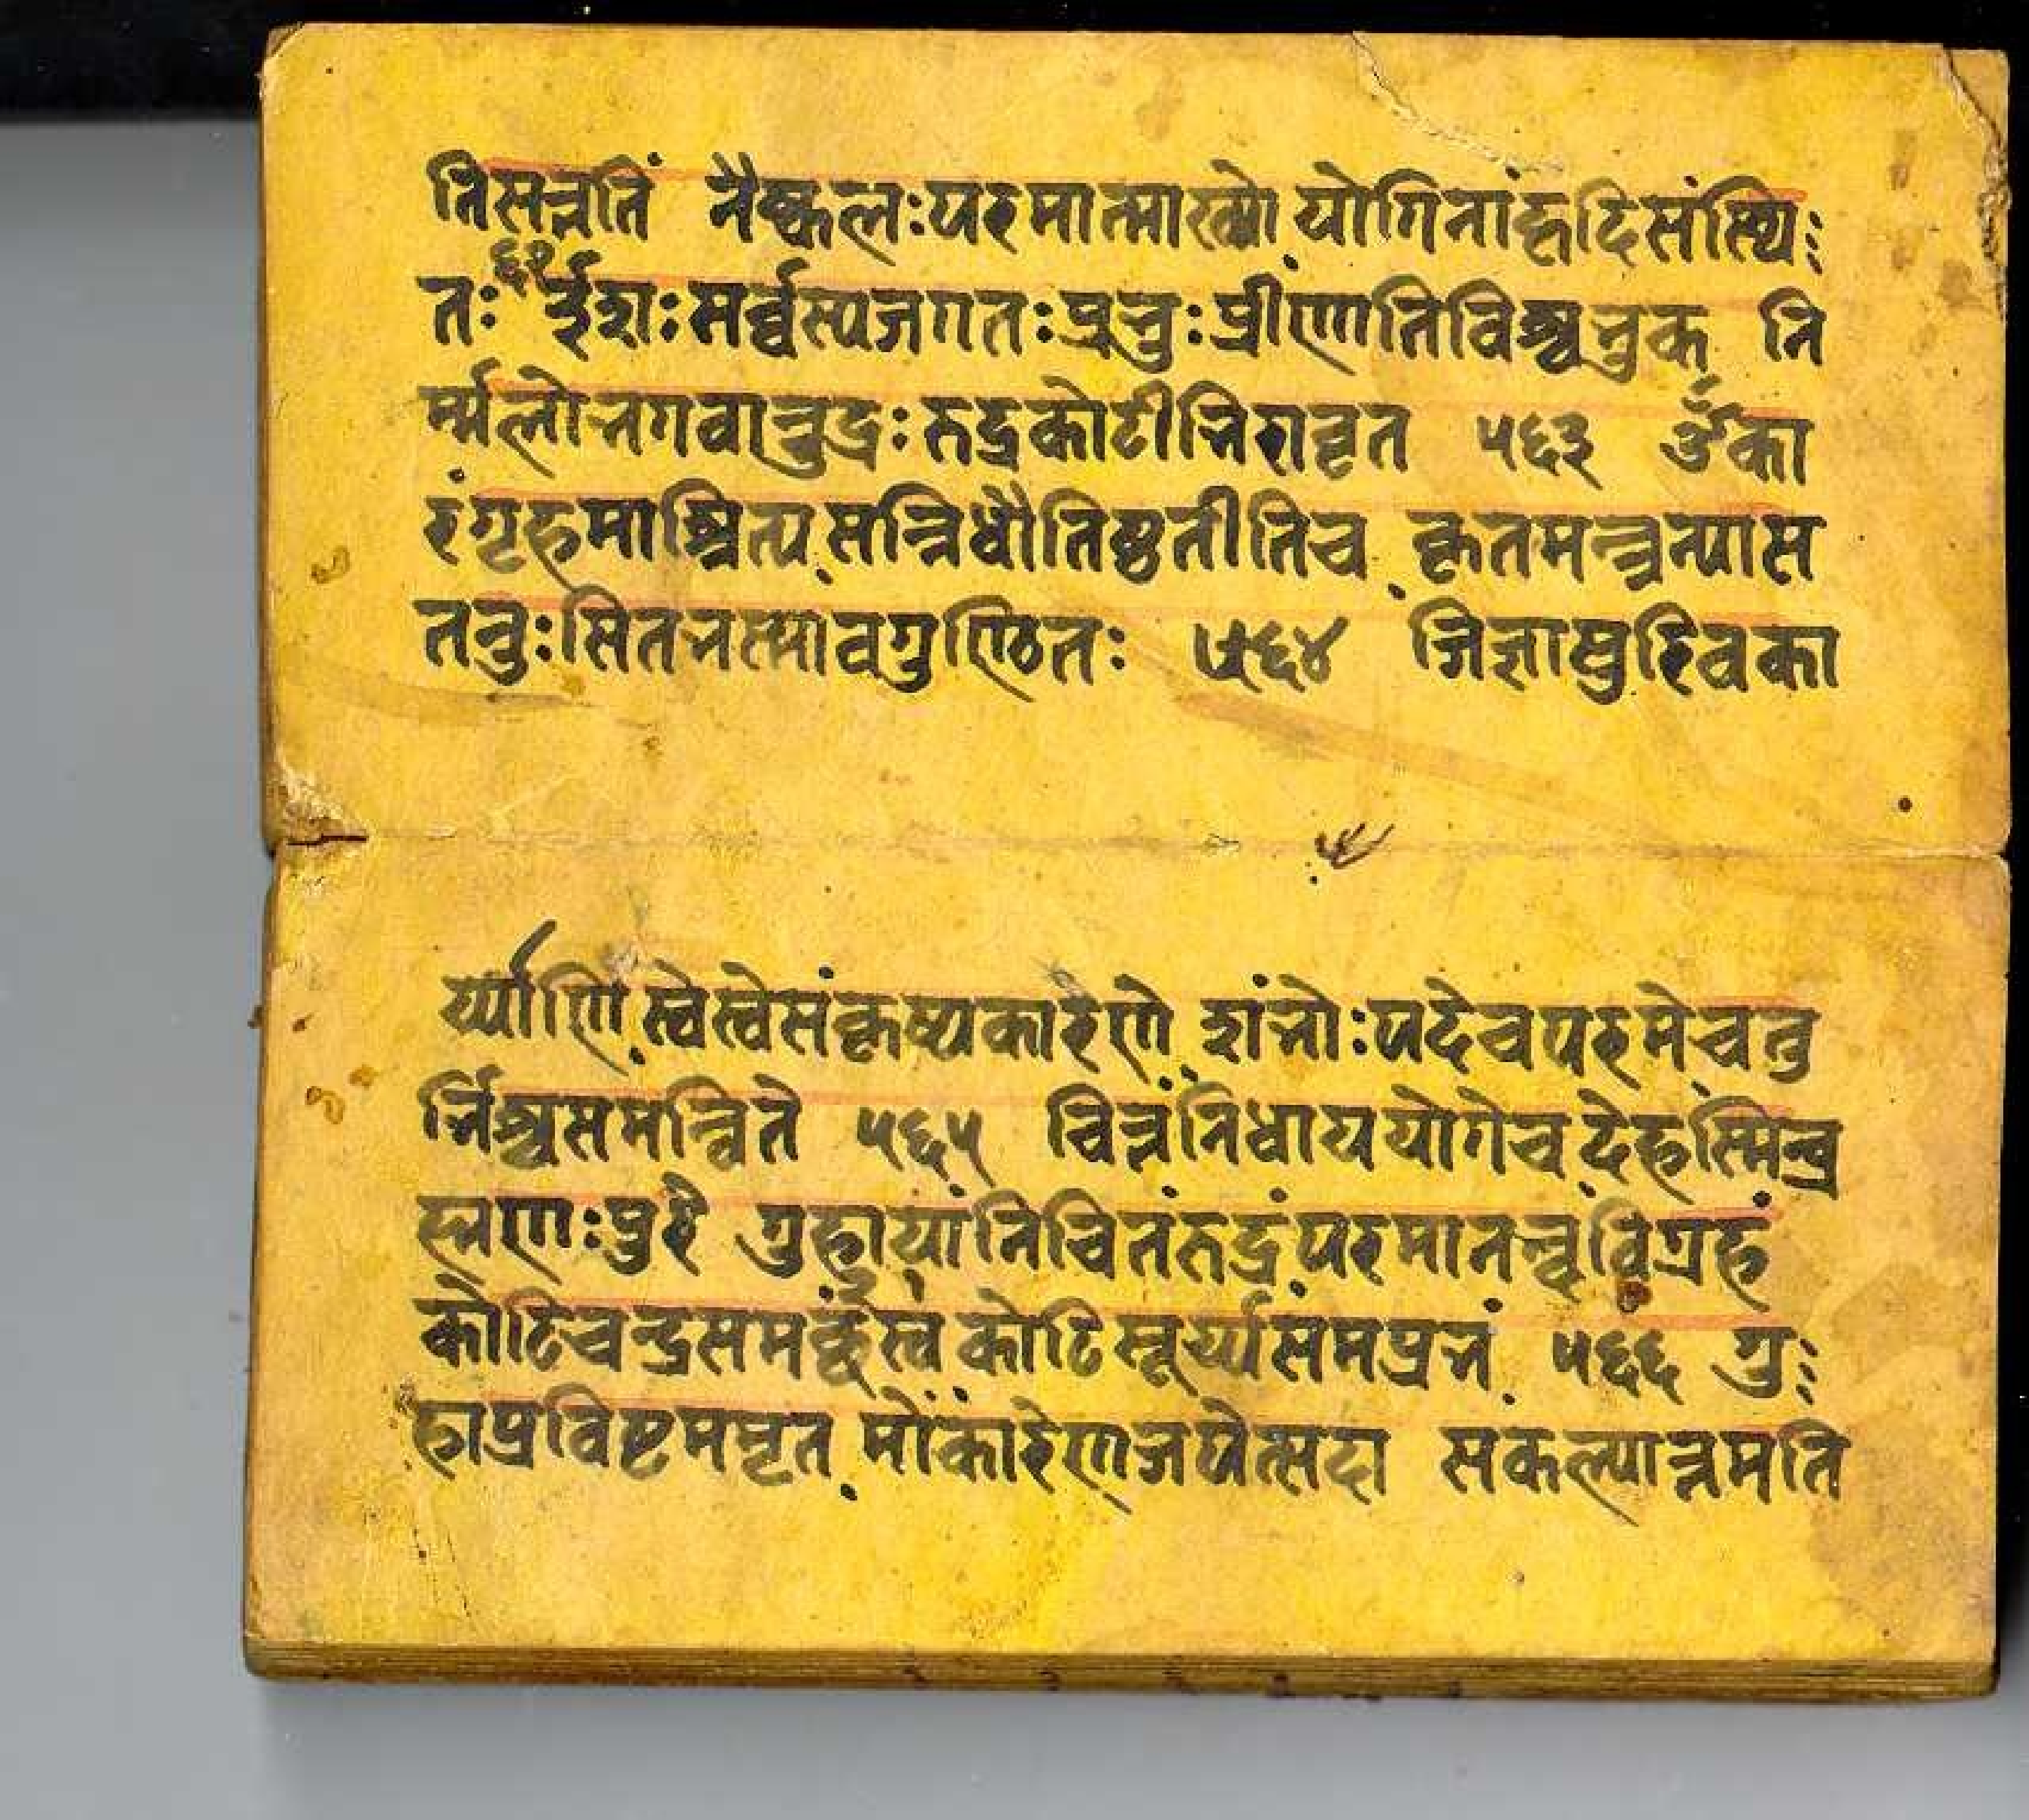 तिसन्नतिं नैष्कलःपरमात्माख्यो योगिनांहृदिसंस्थि
तः ६२ ईशःसर्व्वस्यजगतःप्रभुःप्रीणातिविश्वभुक् नि
र्म्मलोभगवान्रुद्रःरुद्रकोटीभिरावृत ५६३ ॐका
रंगृहमाश्रित्यसन्निधौतिष्ठतीतिच कृतमन्त्रन्यास
तनुःसितभस्मावगुण्ठितः ५६४ जिज्ञासुश्शिवका
र्य्याणि स्वेस्वेसंकृष्यकारणे शंभोःपदेचपरमेचतु
र्भिश्चसमन्विते ५६५ चित्तंनिधाययोगेच देहस्मिन्ब्र
ह्मणःपुरे गुहायांनिचितंरुद्रंपरमानन्दविग्रहं
कोटिचन्द्रसमं कोटिसूर्य्यसमप्रभं ५६६ गु
हाप्रविष्टममृत मोंकारेणजपेत्सदा संकल्पान्नमति